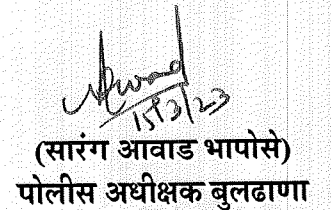 15/3/23
(सारंग आवाड भापोसे)
पोलीस अधीक्षक बुलढाणा